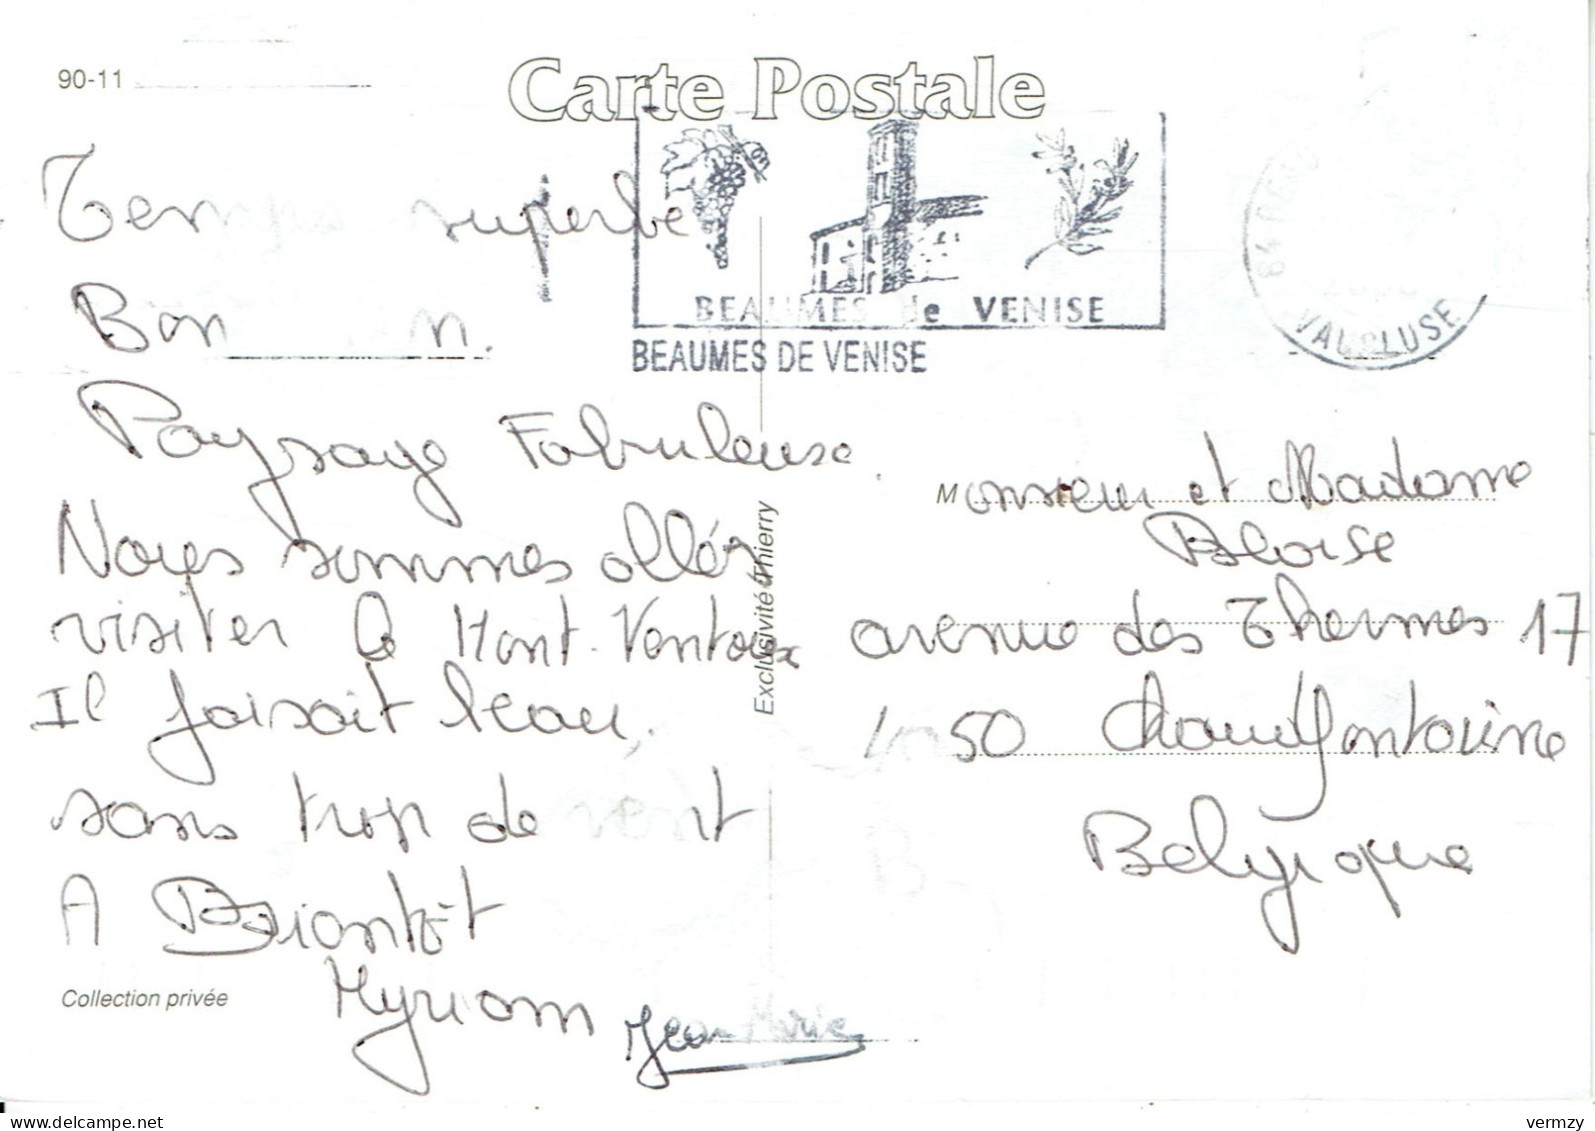 90-11
Carte Postale
BEAUMES de VENISE
BEAUMES DE VENISE
84 BEAU
VAUCLUSE
Temps superbe
Bon n.
Paysage Fabuleuse.
Nous sommes allés
visiter le Mont-Ventoux
Il faisait beau.
sans trop de vent
A Biantôt
Myriam Jean Marie
Collection privée
Exclusivité thierry
Monsieur et Madame
Bloise
avenue des Thermes 17
4050 Chaudfontaine
Belgique
delcampe.net
vermzy